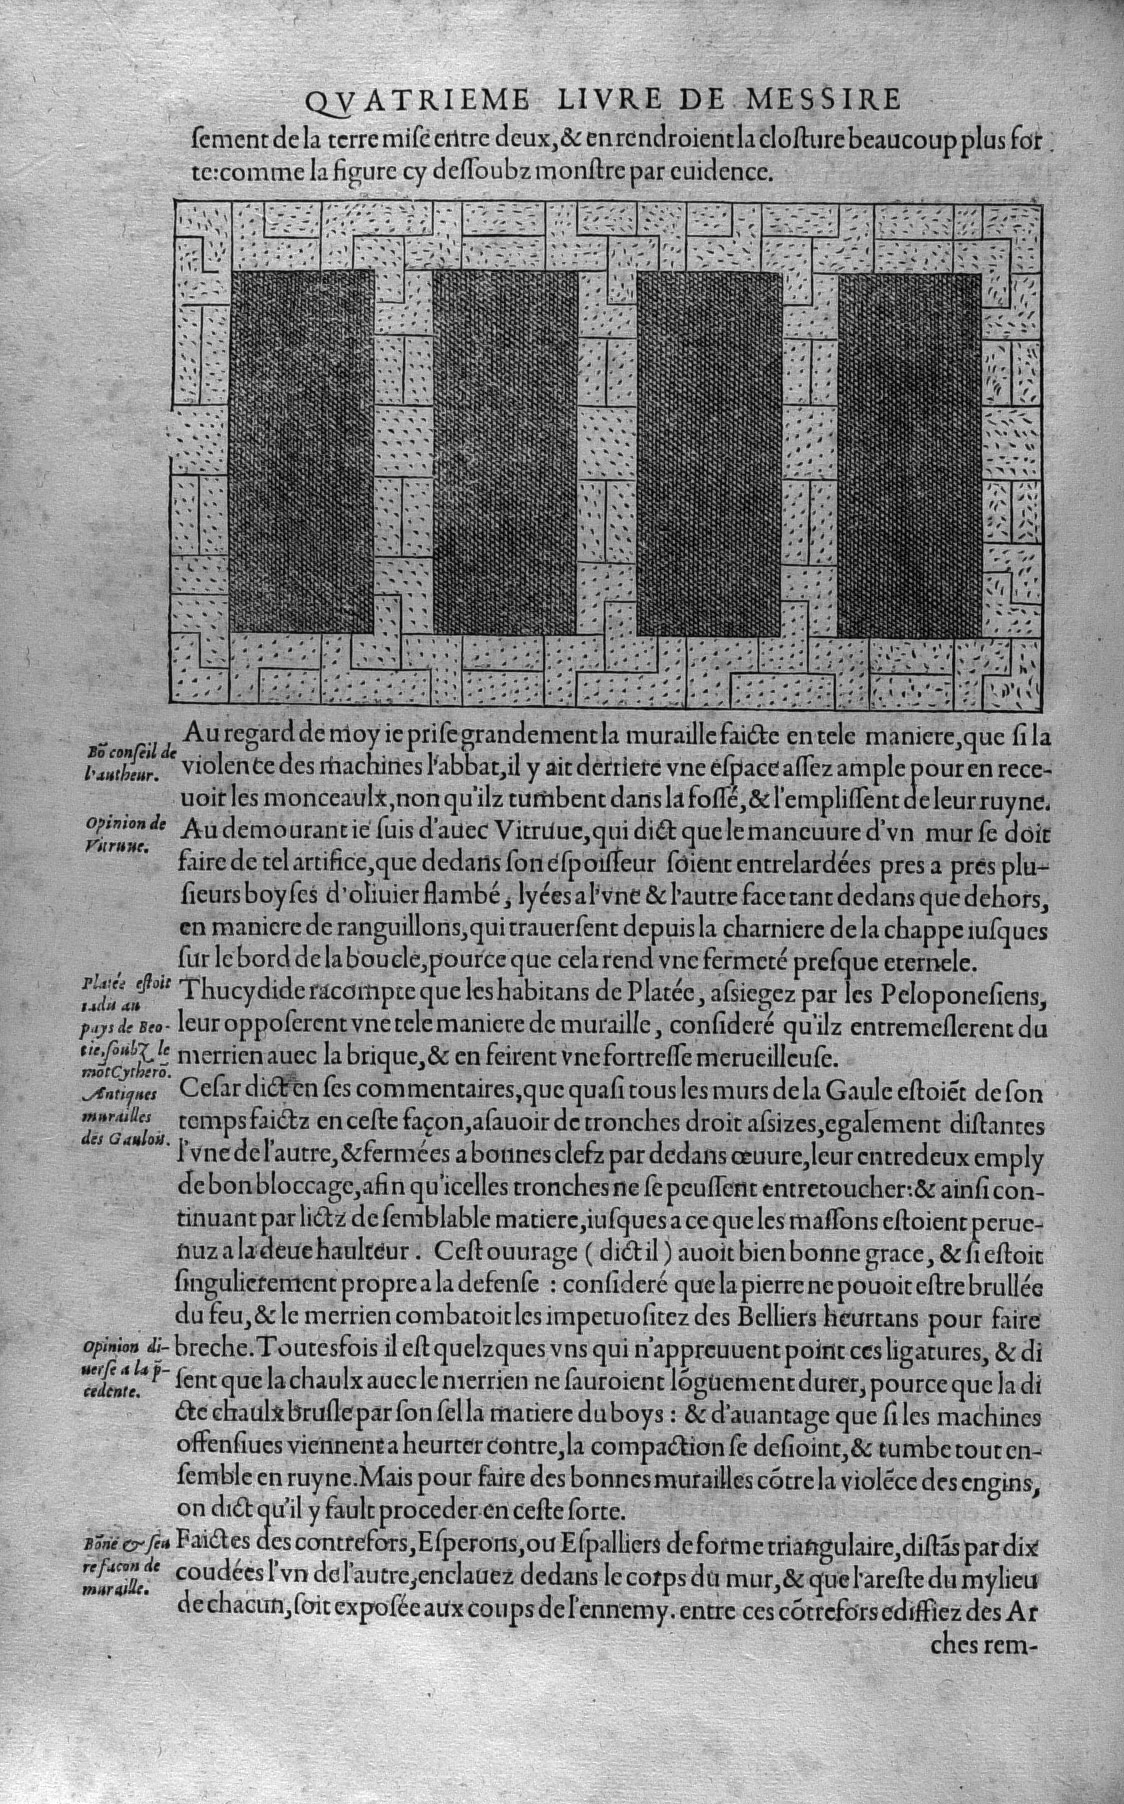 QVATRIEME LIVRE DE MESSIRE
ſement de la terre miſe entre deux, & en rendroient la cloſture beaucoup plus for
te: comme la figure cy deſſoubz monſtre par euidence.
Au regard de moy ie priſe grandement la muraille faicte en tele maniere, que ſi la
Bõ conſeil de
l'autheur.
violente des machines l'abbat, il y ait derriere vne eſpace aſſez ample pour en rece-
uoir les monceaulx, non qu'ilz tumbent dans la foſſé, & l'empliſſent de leur ruyne.
Opinion de
Vitruue.
Au demourant ie ſuis d'auec Vitruue, qui dict que le maneuure d'vn mur ſe doit
faire de tel artifice, que dedans ſon eſpoiſſeur ſoient entrelardées pres a pres plu-
ſieurs boyſes d'oliuier flambé, lyées a l'vne & l'autre face tant dedans que dehors,
en maniere de ranguillons, qui trauerſent depuis la charniere de la chappe iuſques
ſur le bord de la boucle, pource que cela rend vne fermeté preſque eternele.
Platée eſtoit
iadis au
pays de Beo-
tie, ſoubz le
mõt Cytherõ.
Thucydide racompte que les habitans de Platée, aſsiegez par les Peloponeſiens,
leur oppoſerent vne tele maniere de muraille, conſideré qu'ilz entremeſlerent du
merrien auec la brique, & en feirent vne fortreſſe merueilleuſe.
Antiques
murailles
des Gaulois.
Ceſar dict en ſes commentaires, que quaſi tous les murs de la Gaule eſtoiẽt de ſon
temps faictz en ceſte façon, aſauoir de tronches droit aſsizes, egalement diſtantes
l'vne de l'autre, & fermées a bonnes clefz par dedans œuure, leur entredeux emply
de bon bloccage, afin qu'icelles tronches ne ſe peuſſent entretoucher: & ainſi con-
tinuant par lictz de ſemblable matiere, iuſques a ce que les maſſons eſtoient perue-
nuz a la deue haulteur. Ceſt ouurage ( dict il ) auoit bien bonne grace, & ſi eſtoit
ſingulierement propre a la defenſe : conſideré que la pierre ne pouoit eſtre brullée
du feu, & le merrien combatoit les impetuoſitez des Belliers heurtans pour faire
Opinion di-
uerſe a la p̃-
cedente.
breche. Toutesfois il eſt quelzques vns qui n'appreuuent point ces ligatures, & di
ſent que la chaulx auec le merrien ne ſauroient lõguement durer, pource que la di
cte chaulx bruſle par ſon ſel la matiere du boys : & d'auantage que ſi les machines
offenſiues viennent a heurter contre, la compaction ſe deſioint, & tumbe tout en-
ſemble en ruyne. Mais pour faire des bonnes murailles cõtre la violẽce des engins,
on dict qu'il y fault proceder en ceſte ſorte.
Bõne & ſeu
re facon de
muraille.
Faictes des contrefors, Eſperons, ou Eſpalliers de forme triangulaire, diſtãs par dix
coudées l'vn de l'autre, enclauez dedans le corps du mur, & que l'areſte du mylieu
de chacun, ſoit expoſée aux coups de l'ennemy. entre ces cõtrefors ediffiez des Ar
ches rem-